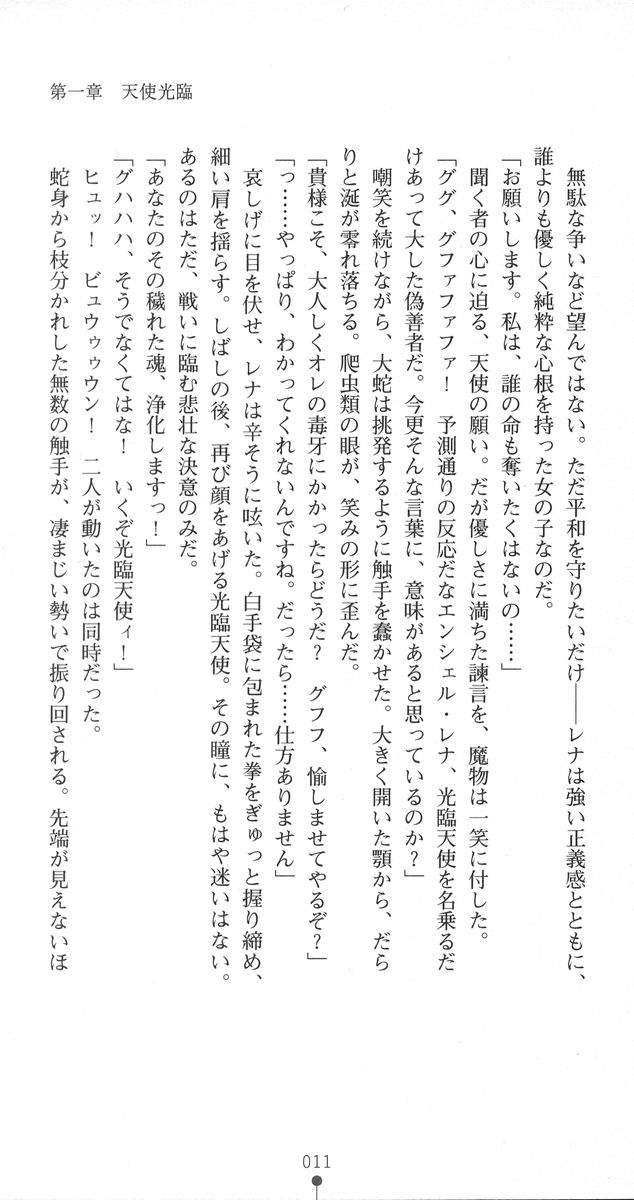 第一章　天使光臨
　無駄な争いなど望んではない。ただ平和を守りたいだけ――レナは強い正義感とともに、
誰よりも優しく純粋な心根を持った女の子なのだ。
「お願いします。私は、誰の命も奪いたくはないの……」
　聞く者の心に迫る、天使の願い。だが優しさに満ちた諫言を、魔物は一笑に付した。
「グググ、グファファファ！　予測通りの反応だなエンシェル・レナ、光臨天使を名乗るだ
けあって大した偽善者だ。今更そんな言葉に、意味があると思っているのか？」
　嘲笑を続けながら、大蛇は挑発するように触手を蠢かせた。大きく開いた顎から、だら
りと涎が零れ落ちる。爬虫類の眼が、笑みの形に歪んだ。
「貴様こそ、大人しくオレの毒牙にかかったらどうだ？　グフフ、愉しませてやるぞ？」
「っ……やっぱり、わかってくれないんですね。だったら……仕方ありません」
　哀しげに目を伏せ、レナは辛そうに呟いた。白手袋に包まれた拳をぎゅっと握り締め、
細い肩を揺らす。しばしの後、再び顔をあげる光臨天使。その瞳に、もはや迷いはない。
あるのはただ、戦いに臨む悲壮な決意のみだ。
「あなたのその穢れた魂、浄化しますっ！」
「グハハハ、そうでなくてはな！　いくぞ光臨天使ィ！」
　ヒュッ！　ビュウゥゥウン！　二人が動いたのは同時だった。
　蛇身から枝分かれした無数の触手が、凄まじい勢いで振り回される。先端が見えないほ
011